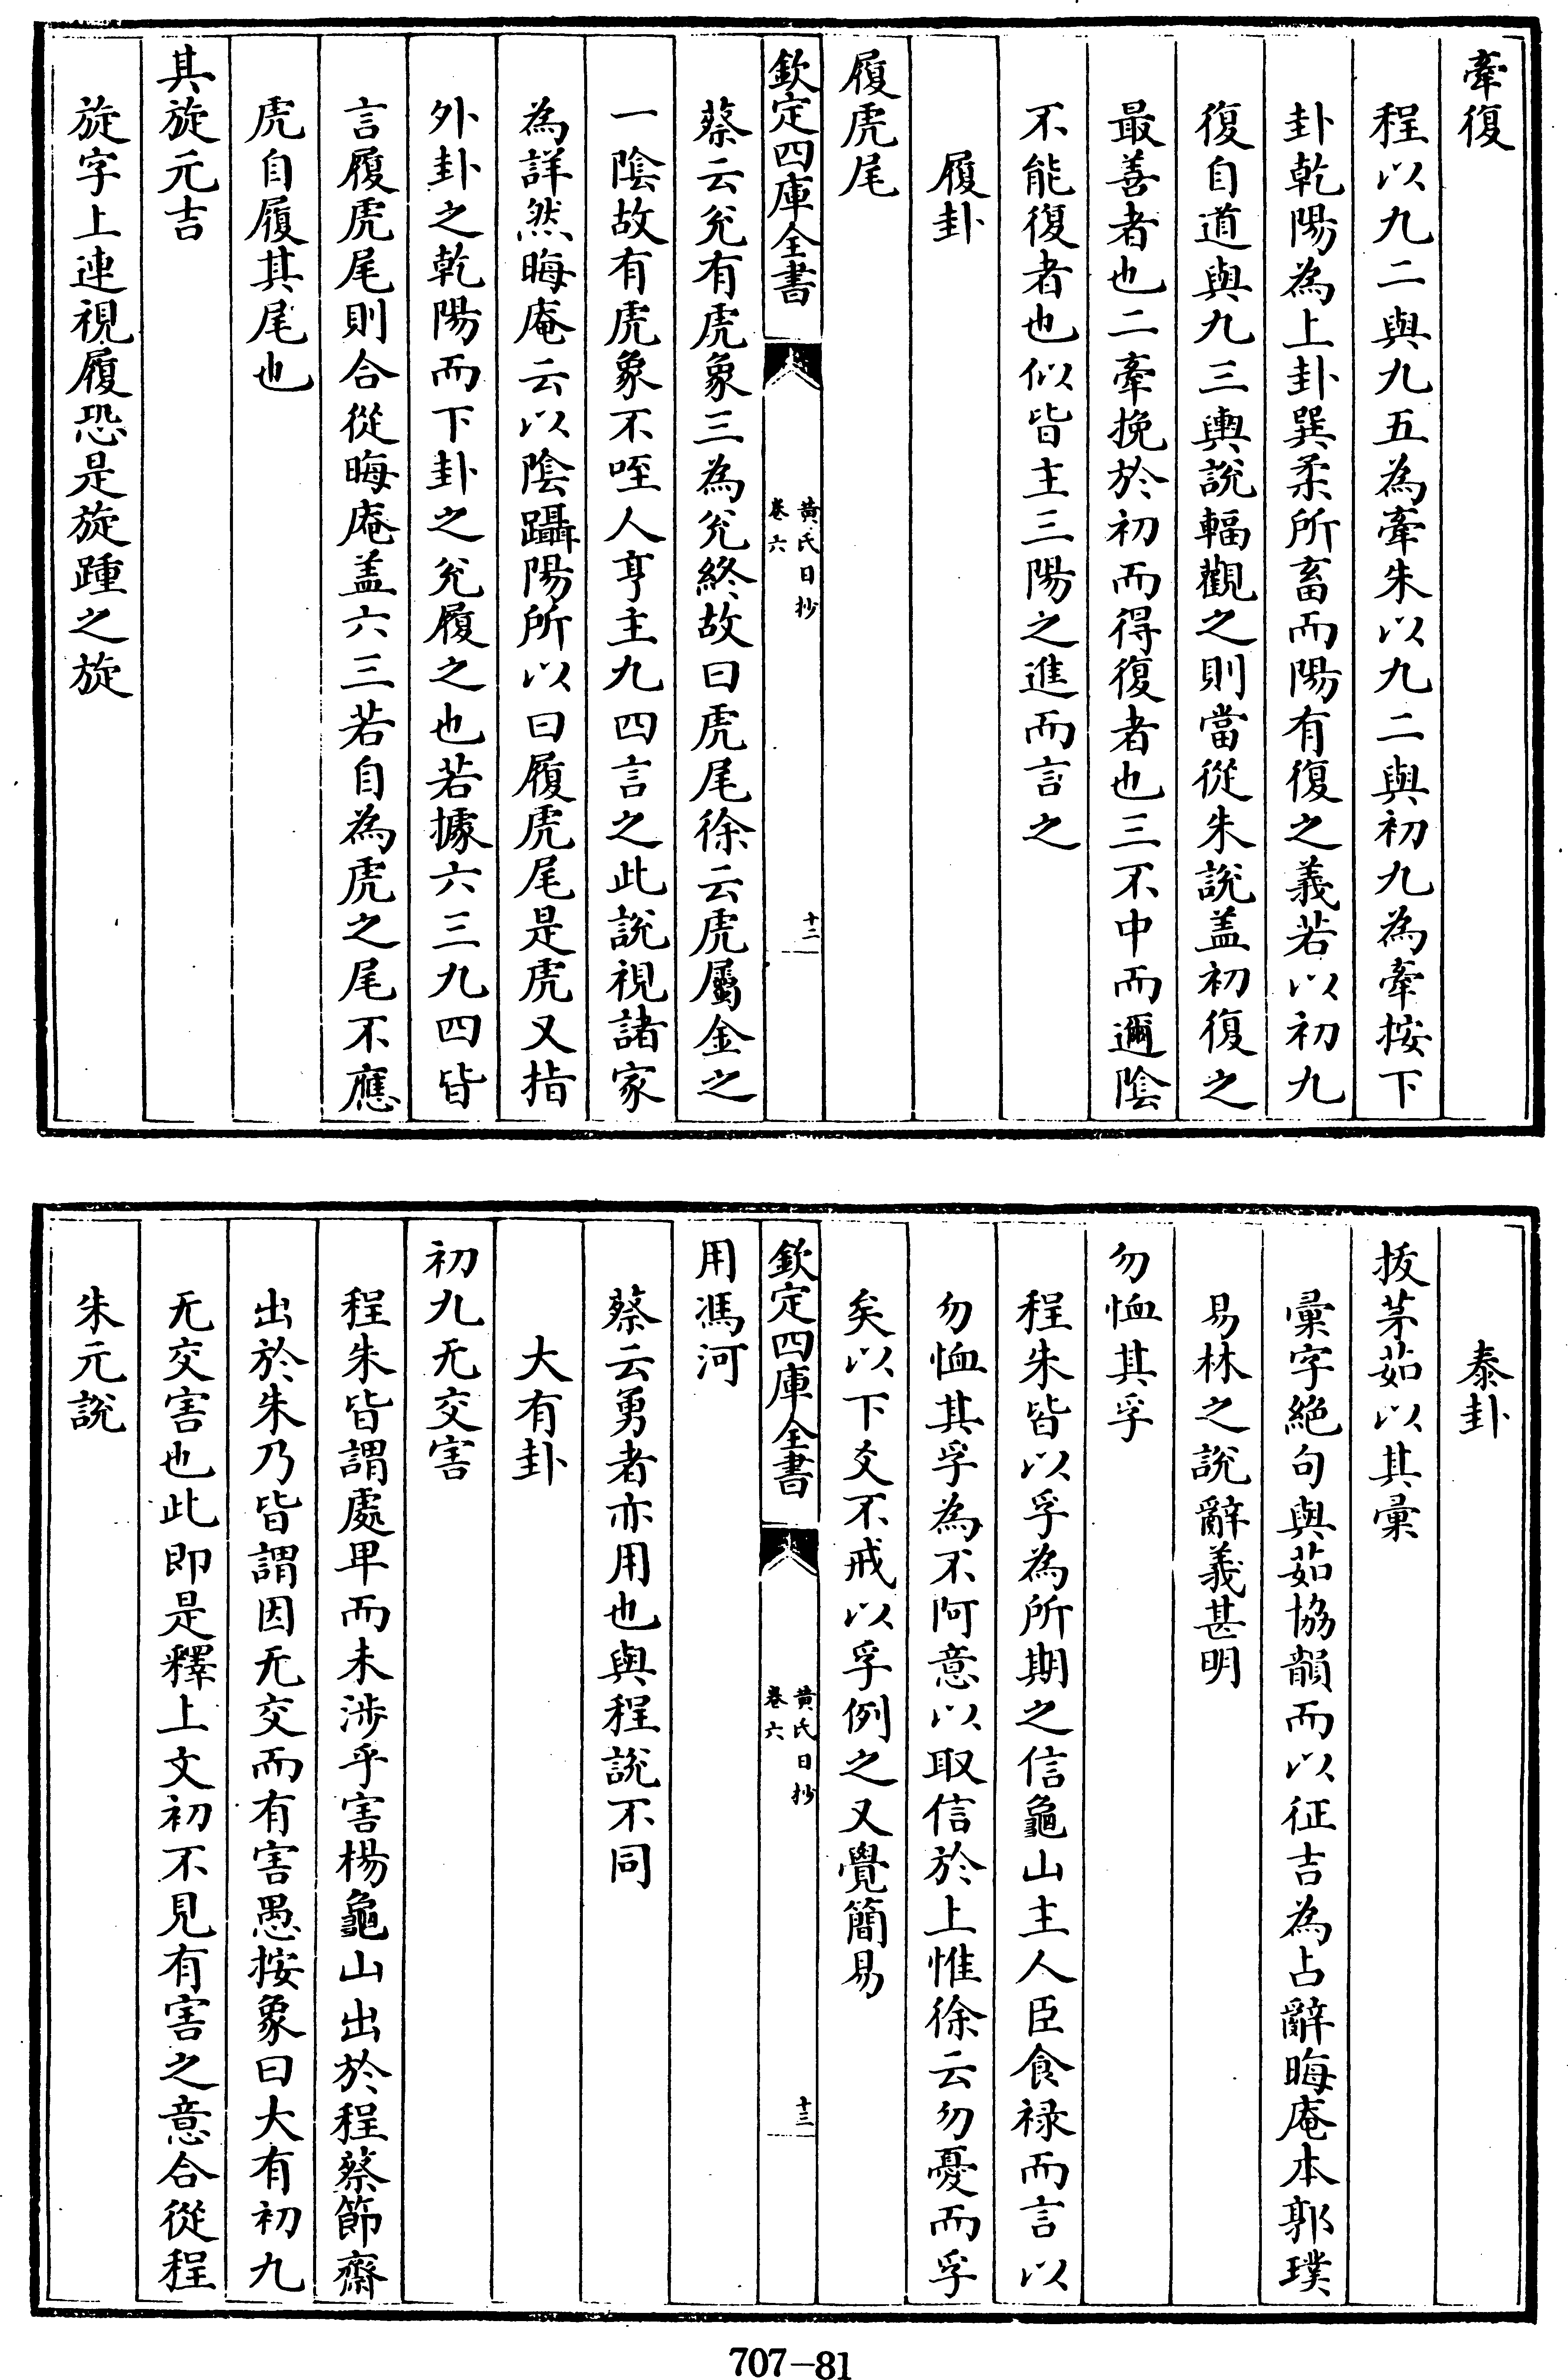 牽復
程以九二與九五為牽朱以九二與初九為牽按下
卦乾陽為上卦巽柔所畜而陽有復之義若以初九
復自道與九三輿說輻觀之則當從朱說盖初復之
最善者也二牽挽於初而得復者也三不中而邇陰
不能復者也似皆主三陽之進而言之
履卦
履虎尾
欽定四庫全書
黄氏日抄
卷六
十二
蔡云兊有虎象三為兊終故曰虎尾徐云虎屬金之
一陰故有虎象不咥人亨主九四言之此說視諸家
為詳然晦庵云以陰躡陽所以曰履虎尾是虎又指
外卦之乾陽而下卦之兊履之也若據六三九四皆
言履虎尾則合從晦庵盖六三若自為虎之尾不應
虎自履其尾也
其旋元吉
旋字上連視履恐是旋踵之旋
泰卦
拔茅茹以其彚
彚字絶句與茹協韻而以征吉為占辭晦庵本郭璞
易林之說辭義甚明
勿恤其孚
程朱皆以孚為所期之信龜山主人臣食禄而言以
勿恤其孚為不阿意以取信於上惟徐云勿憂而孚
矣以下爻不戒以孚例之又覺簡易
欽定四庫全書
黄氏日抄
卷六
十三
用馮河
蔡云勇者亦用也與程說不同
大有卦
初九无交害
程朱皆謂處卑而未涉乎害楊龜山出於程蔡節齋
出於朱乃皆謂因无交而有害愚按象曰大有初九
无交害也此即是釋上文初不見有害之意合從程
朱元說
707-81